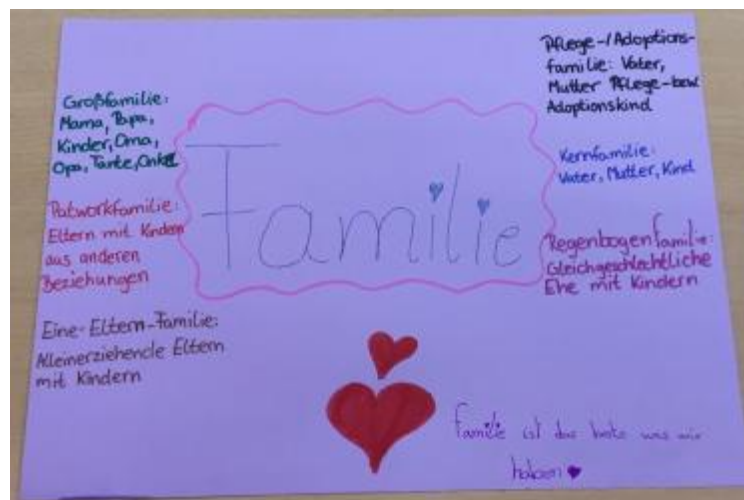 Großfamilie:
Mama, Papa,
Kinder, Oma,
Opa, Tante, Onkel
Patworkfamilie:
Eltern mit Kindern
aus anderen
Beziehungen
Eine-Eltern-Familie:
Alleinerziehende Eltern
mit Kindern
Familie
Pflege-/Adoptions-
familie: Vater,
Mutter Pflege-bzw.
Adoptionskind
Kernfamilie:
Vater, Mutter, Kind
Regenbogenfamilie:
Gleichgeschlechtliche
Ehe mit Kindern
Familie ist das beste was wir
haben